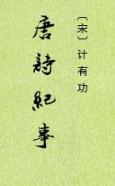 〔宋〕计有功
唐詩紀事